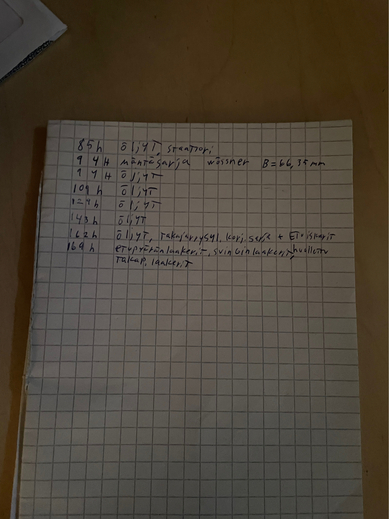 85h öljyt, staattori
94H mäntäsarja wössner B=66,35mm
94H öljyt
109h öljyt
124h öljyt
143h öljyt
162h öljyt, takajarrusyl. korj. sarja + Etuiskarit
169h etupyöränlaakerit, swinginlaakerit, huollettu
takap. laakerit